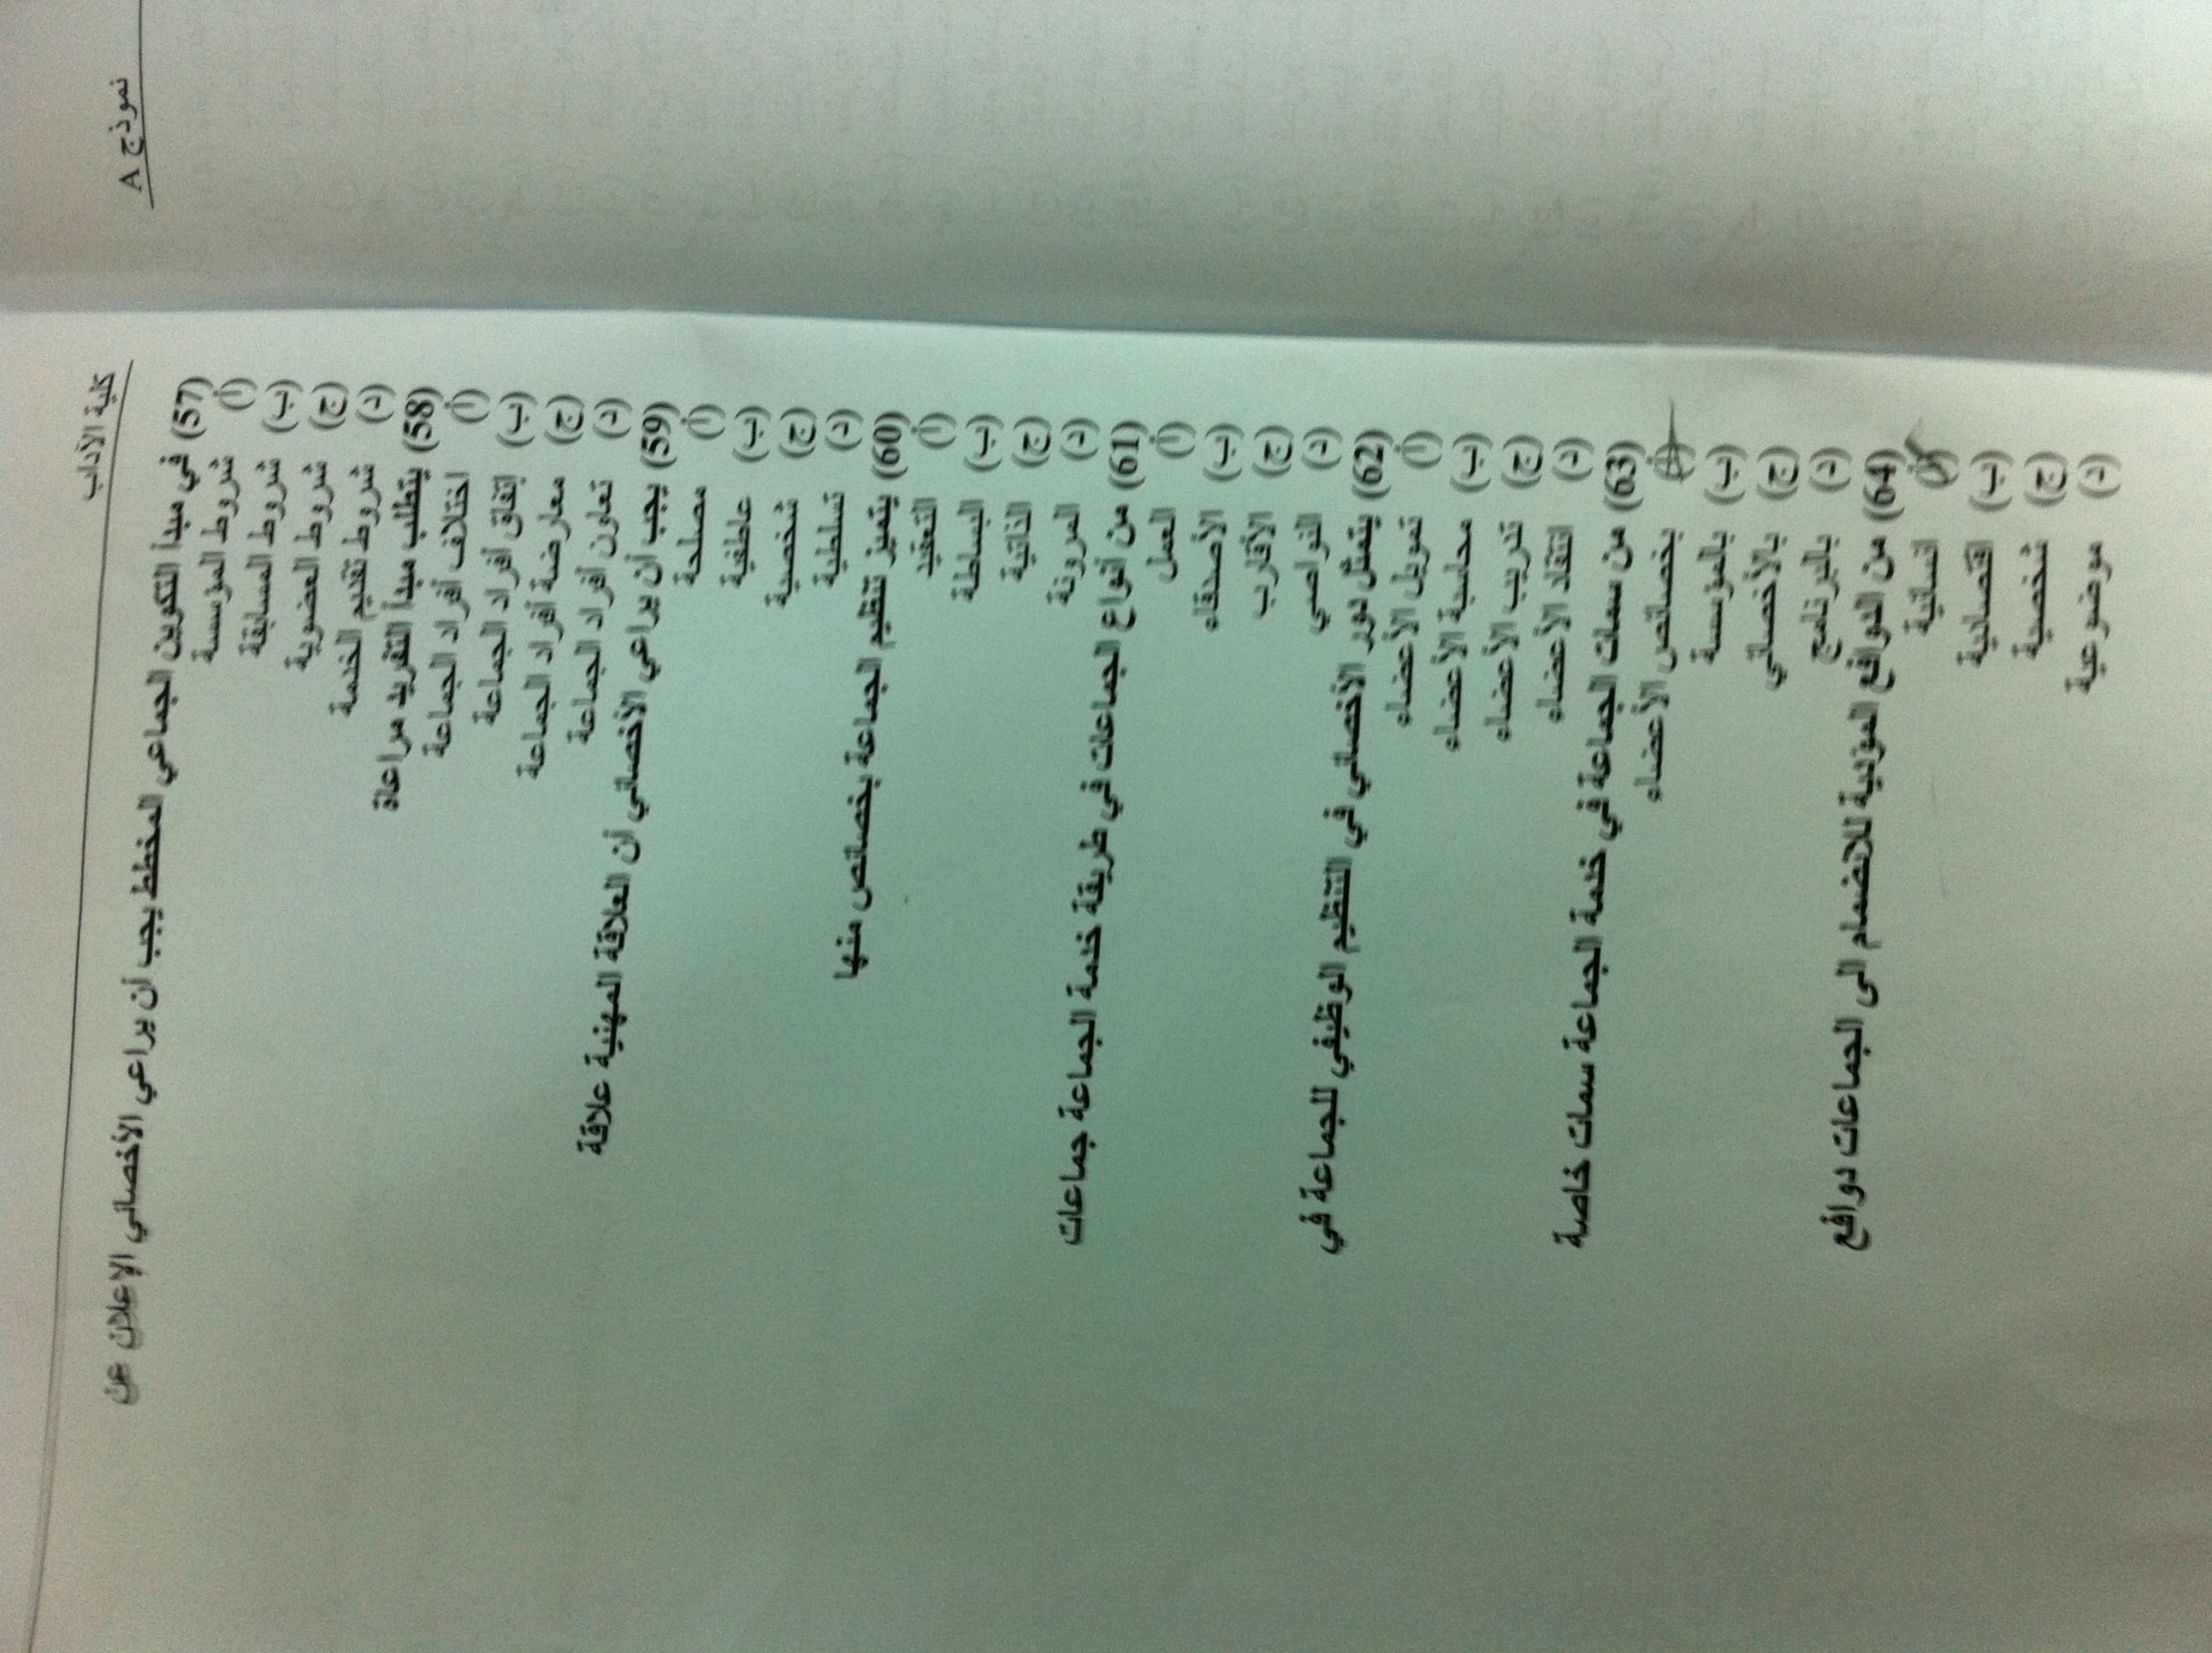 نموذج A
كلية الآداب
(57) في مبدأ التكوين الجماعي المخطط يجب أن يراعي الأخصائي الإعلان عن
(أ) شروط المؤسسة
(ب) شروط المسابقة
(ج) شروط العضوية
(د) شروط تقديم الخدمة
(58) يتطلب مبدأ التفريد مراعاة
(أ) اختلاف أفراد الجماعة
(ب) إتفاق أفراد الجماعة
(ج) معارضة أفراد الجماعة
(د) تعاون أفراد الجماعة
(59) يجب أن يراعي الأخصائي أن العلاقة المهنية علاقة
(أ) مصلحة
(ب) عاطفية
(ج) شخصية
(د) تسلطية
(60) يتميز تنظيم الجماعة بخصائص منها
(أ) التعقيد
(ب) البساطة
(ج) الذاتية
(د) المرونة
(61) من أنواع الجماعات في طريقة خدمة الجماعة جماعات
(أ) العمل
(ب) الأصدقاء
(ج) الأقارب
(د) النواصي
(62) يتمثل دور الأخصائي في التنظيم الوظيفي للجماعة في
(أ) تمويل الأعضاء
(ب) محاسبة الأعضاء
(ج) تدريب الأعضاء
(د) انتقاد الأعضاء
(63) من سمات الجماعة في خدمة الجماعة سمات خاصة
(أ) بخصائص الأعضاء
(ب) بالمؤسسة
(ج) بالأخصائي
(د) بالبرنامج
(64) من الدوافع المؤدية للانضمام الى الجماعات دوافع
(أ) انسانية
(ب) اقتصادية
(ج) شخصية
(د) موضوعية